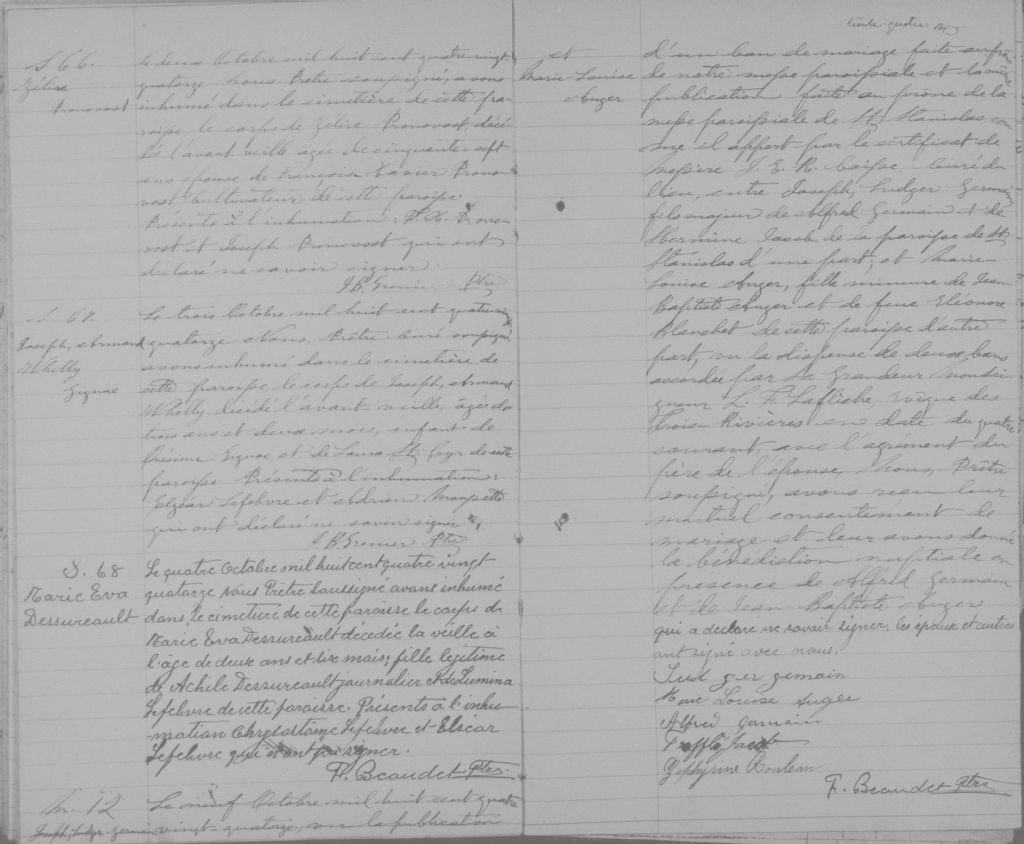 S. 66.
Zélire
Pronovost
Le deux Octobre mil huit cent quatre vingt
quatorze Nous Prêtre soussigné, avons
inhumé dans le cimetière de cette pa-
roisse le corps de Zélire Pronovost, décé-
dée l'avant veille agée de cinquante sept
ans epouse de François Xavier Prono-
vost Cultivateur de cette paroisse.
Présents à l'inhumation: F. X. Prono-
vost et Joseph Pronovost qui ont
déclaré ne savoir signer.
J. B. Grenier Ptre
S. 67.
Joseph, Armand
Whelly
Gignac
Le trois Octobre mil huit cent quatrevingt
quatorze Nous, Prêtre Curé soussigné,
avons inhumé dans le cimetière de
cette paroisse, le corps de Joseph, Armand
Whelly, décédé l'avant-veille, âgée de
trois ans et deux mois, enfant de
Onésime Gignac, et de Laura St Cyr de cette
paroisse Présents à l'inhumation:
Elzéar Lefebvre et Adrien
qui ont déclaré ne savoir signer
J. B. Grenier Ptre
S. 68
Marie Eva
Dessureault
Le quatre Octobre mil huit cent quatre vingt
quatorze Nous Prêtre soussigné avons inhumé
dans le cimetière de cette paroisse le corps de
Marie Eva Dessureault décédée la veille à
l'âge de deux ans et six mois; fille legitime
de Achile Dessureault journalier et de Lumina
Lefebvre de cette paroisse. Présents à l'inhu-
mation Chrysostôme Lefebvre et Elséar
Lefebvre qui n'ont pu signer.
F. Beaudet Ptre.
M. 12
Joseph, Ludger Germain
Le neuf Octobre mil huit cent quatre
vingt-quatorze, vu la publication
trente-quatre
et
Marie-Louise
Auger
d'un ban de mariage faite au prône
de notre messe paroissiale et la même
publication faite au prône de la
messe paroissiale de St Stanislas, com
me il appert par le certificat de
Messire J. E. R. Caisse, Curé du
lieu, entre Joseph, Ludger Germain
fils majeur de Alfred Germain et de
Hermine Jacob de la paroisse de St
Stanislas d'une part; et Marie-
Louise Auger, fille mineure de Jean
Baptiste Auger et de feue Eléonore
Blanchet de cette paroisse d'autre
part, vu la dispense de deux bans
accordée par Sa Grandeur Monsei
gneur L. F. Laflèche, Evêque des
Trois-Rivières en date du quatre
courant, avec l'agrément du
père de l'épouse, Nous, Prêtre
soussigné, avons reçu leur
mutuel consentement de
mariage et leur avons donné
la bénédiction nuptiale en
presence de Alfred Germain
et de Jean Baptiste Auger
qui a déclaré ne savoir signer. les époux et autres
ont signé avec nous.
Lud ger germain
Marie Louise Auger
Alfred germain
Jacob
Zephyrine Rouleau
F. Beaudet Ptre